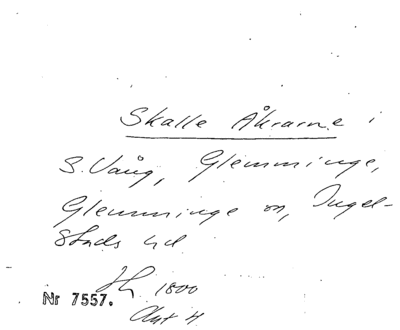 Skalle Åkrarne i
S. Vång, Glemminge,
Glemminge sn, Ingel-
stads hd
1800
Nr 7557.
Akt 4